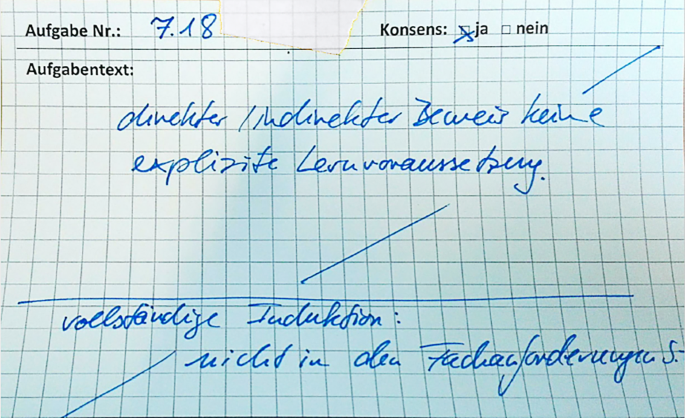 Aufgabe Nr.: 7.18 Konsens: ☒ ja ☐ nein
Aufgabentext:
direkter / indirekter Beweis keine
explizite Lernvoraussetzung.
vollständige Induktion:
nicht in den Fachanforderungen S.